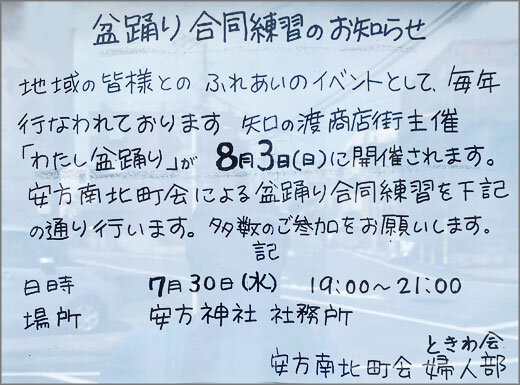 盆踊り合同練習のお知らせ
地域の皆様との ふれあいのイベントとして、毎年
行なわれております 矢口の渡商店街主催
「わたし盆踊り」が 8月3日(日)に開催されます。
安方南北町会による盆踊り合同練習を下記
の通り行います。多数のご参加をお願いします。
記
日時 7月30日(水) 19:00〜21:00
場所 安方神社 社務所
ときわ会
安方南北町会 婦人部